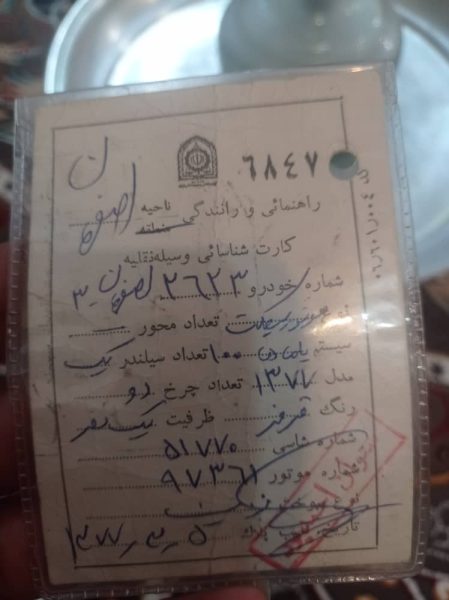 ۶۸۴۷
راهنمائی و رانندگی ناحیه منطقه اصفهان
کارت شناسائی وسیله نقلیه
شماره خودرو ۲۶۲۳ اصفهان ۳
نوع موتورسیکلت تعداد محور
سیستم ۱۰۰ تعداد سیلندر یک
مدل ۱۳۷۷ تعداد چرخ دو
رنگ قرمز ظرفیت یک نفر
شماره شاسی ۵۱۷۷۰
شماره موتور ۹۷۳۶۱
نوع سوخت بنزین
تاریخ ۱۳۷۷ر۳ر۵